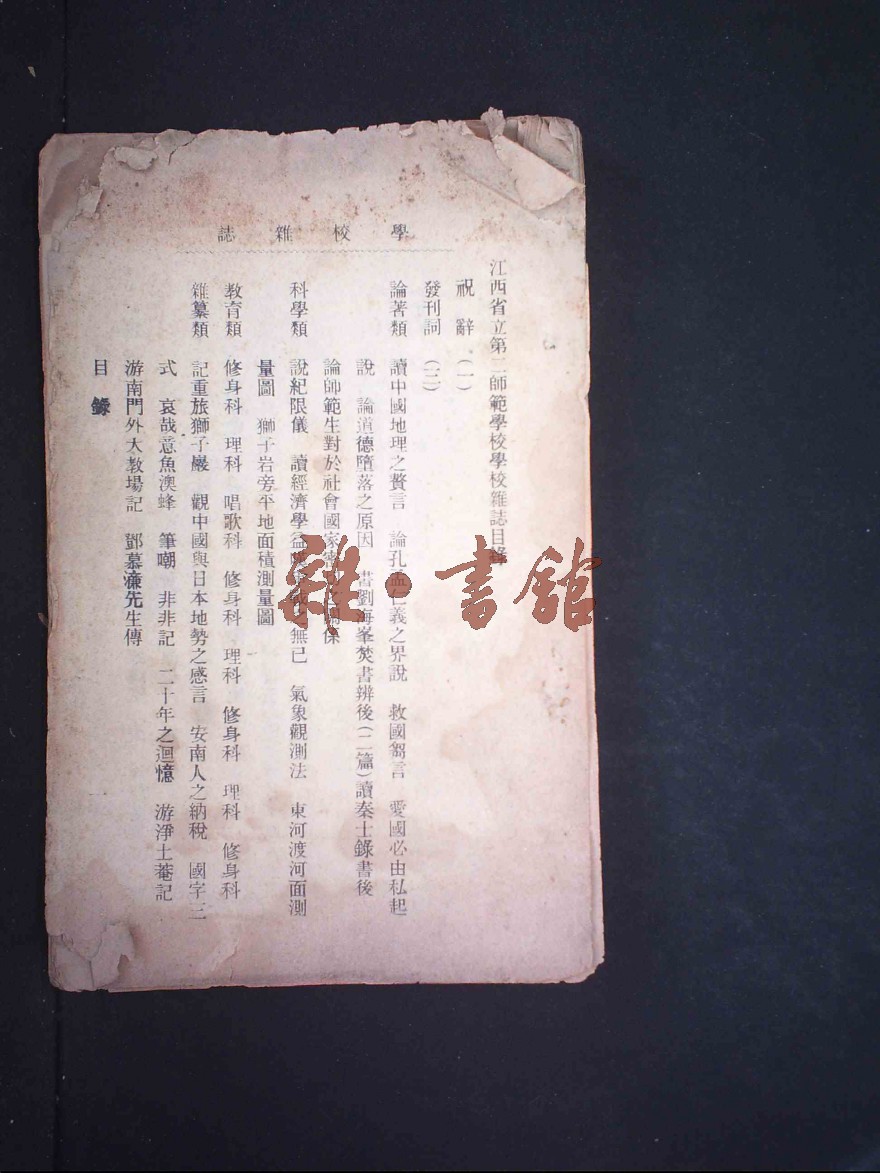 學校雜誌
江西省立第二師範學校學校雜誌目錄
祝辭(一)
發刊詞(三)
論著類 讀中國地理之贅言 論孔孟仁義之界說 救國芻言 愛國必由私起
說 論道德墮落之原因 書劉海峯焚書辨後(二篇)讀秦士錄書後
論師範生對於社會國家 關係
科學類 說紀限儀 讀經濟學 無已 氣象觀測法 東河渡河面測
量圖 獅子岩旁平地面積測量圖
教育類 修身科 理科 唱歌科 修身科 理科 修身科 理科 修身科
雜纂類 記重旅獅子巖 觀中國與日本地勢之感言 安南人之納稅 國字三
式 哀哉意魚澳蜂 筆嘲 非非記 二十年之迴憶 游淨土菴記
游南門外大教場記 鄧慕濂先生傳
目錄
一
雜·書館